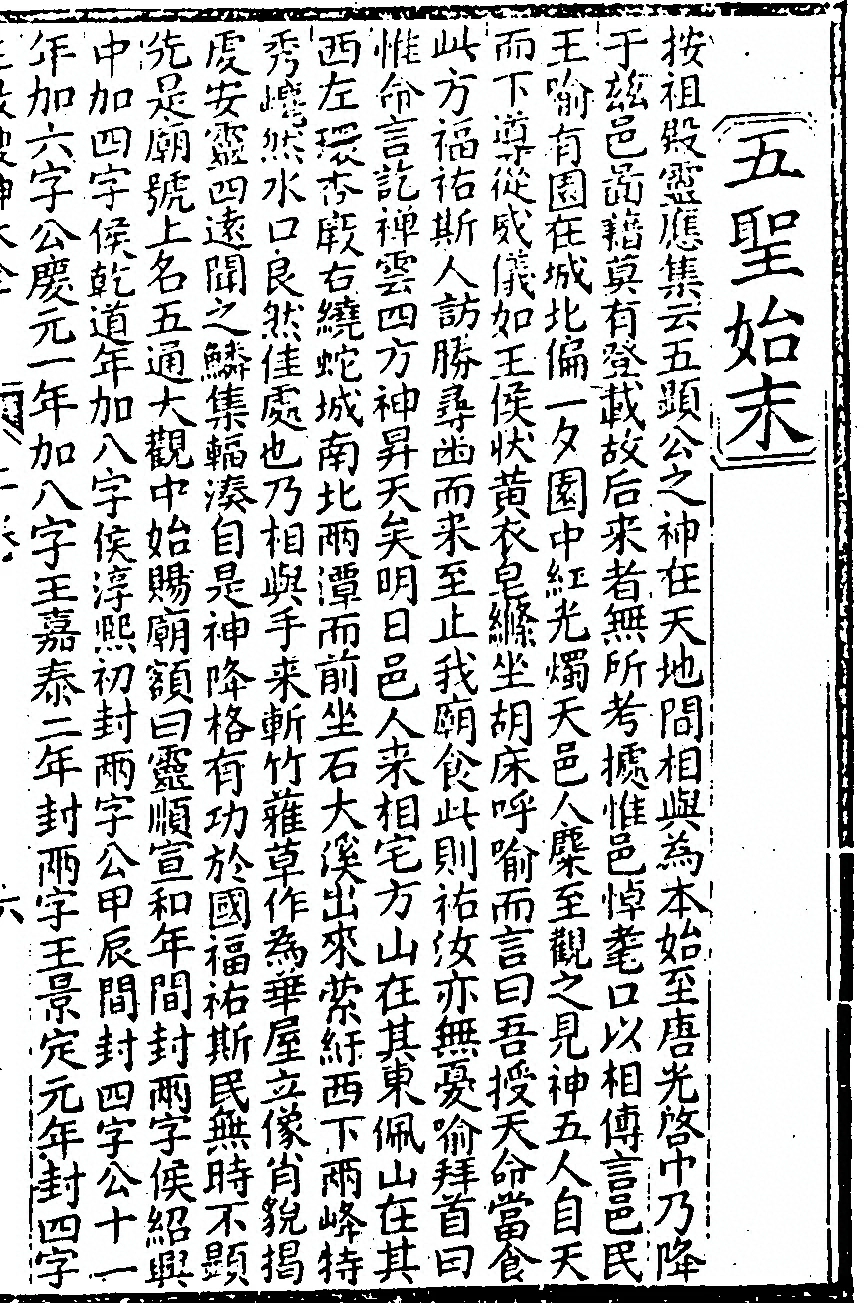 五聖始末
按祖殿靈應集云五顯公之神在天地間相與為本始至唐光啓中乃降
于玆邑啚籍莫有登載故后来者無所考據惟邑悼耄口以相傳言邑民
王喻有園在城北偏一夕園中紅光燭天邑人麇至觀之見神五人自天
而下導從威儀如王侯状黄衣皂縧坐胡床呼喻而言曰吾授天命當食
此方福祐斯人訪勝尋幽而来至止我廟食此則祐汝亦無憂喻拜首曰
惟命言訖祥雲四方神昇天矣明日邑人来相宅方山在其東佩山在其
西左環杏廐右繞蛇城南北兩潭而前坐石大溪出來縈紆西下兩峰特
秀巉然水口良然佳處也乃相與手来斬竹薙草作為華屋立像肖貌揭
虔安靈四遠聞之鱗集輻湊自是神降格有功於國福祐斯民無時不顯
先是廟號上名五通大觀中始賜廟額曰靈順宣和年間封兩字侯紹興
中加四字侯乾道年加八字侯淳熙初封兩字公甲辰間封四字公十一
年加六字公慶元一年加八字王嘉泰二年封兩字王景定元年封四字